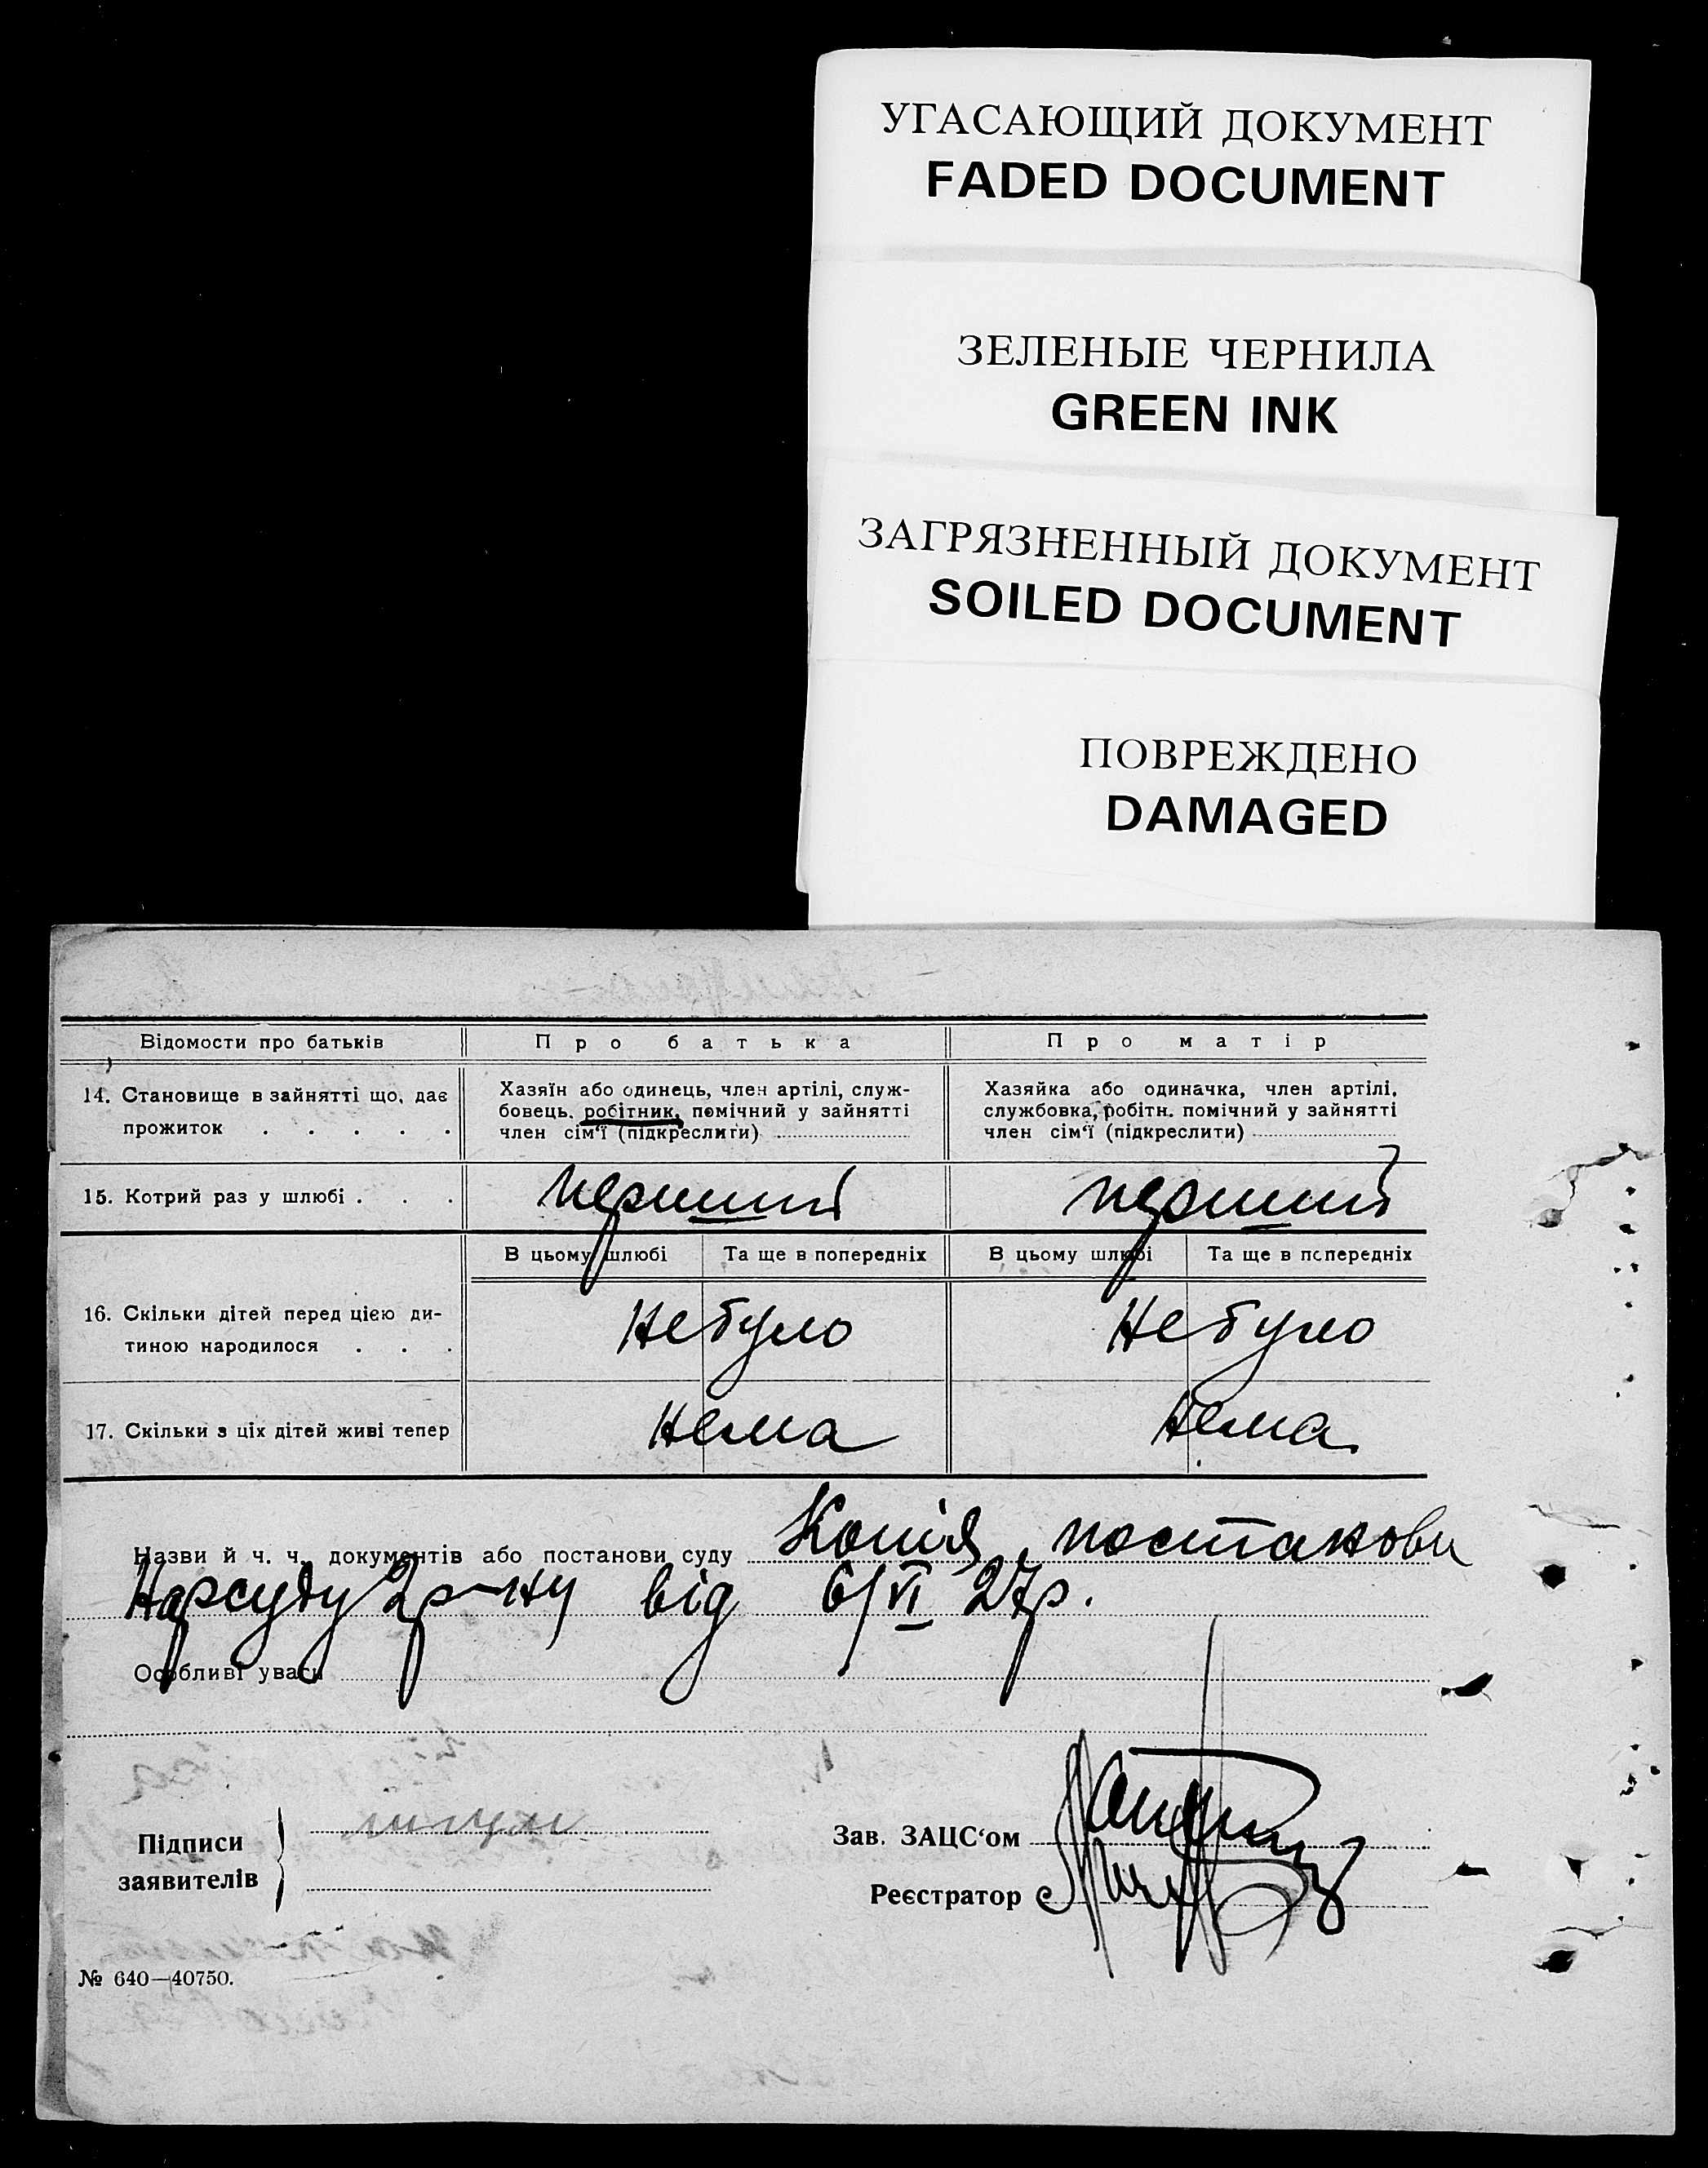 УГАСАЮЩИЙ ДОКУМЕНТ
FADED DOCUMENT
ЗЕЛЕНЫЕ ЧЕРНИЛА
GREEN INK
ЗАГРЯЗНЕННЫЙ ДОКУМЕНТ
SOILED DOCUMENT
ПОВРЕЖДЕНО
DAMAGED
Відомости про батьків
Про батька
Про матір
14. Становище в зайнятті що, дає
прожиток . . . . .
Хазяїн або одинець, член артілі, служ-
бовець, робітник, помічний у зайнятті
член сім'ї (підкреслити)
Хазяйка або одиначка, член артілі,
службовка, робітн. помічний у зайнятті
член сім'ї (підкреслити)
15. Котрий раз у шлюбі . . .
перший
перший
В цьому шлюбі
Та ще в попередніх
В цьому шлюбі
Та ще в попередніх
16. Скільки дітей перед цією ди-
тиною народилося . . .
Небуло
Небуло
17. Скільки з ціх дітей живі тепер
Нема
Нема
Назви й ч. ч. документів або постанови суду Копія постанови
Нарсуду 2 р-ну від 6/VI 27р.
Особливі уваги
Підписи
заявителів
Зав. ЗАЦС'ом
Реєстратор
№ 640—40750.